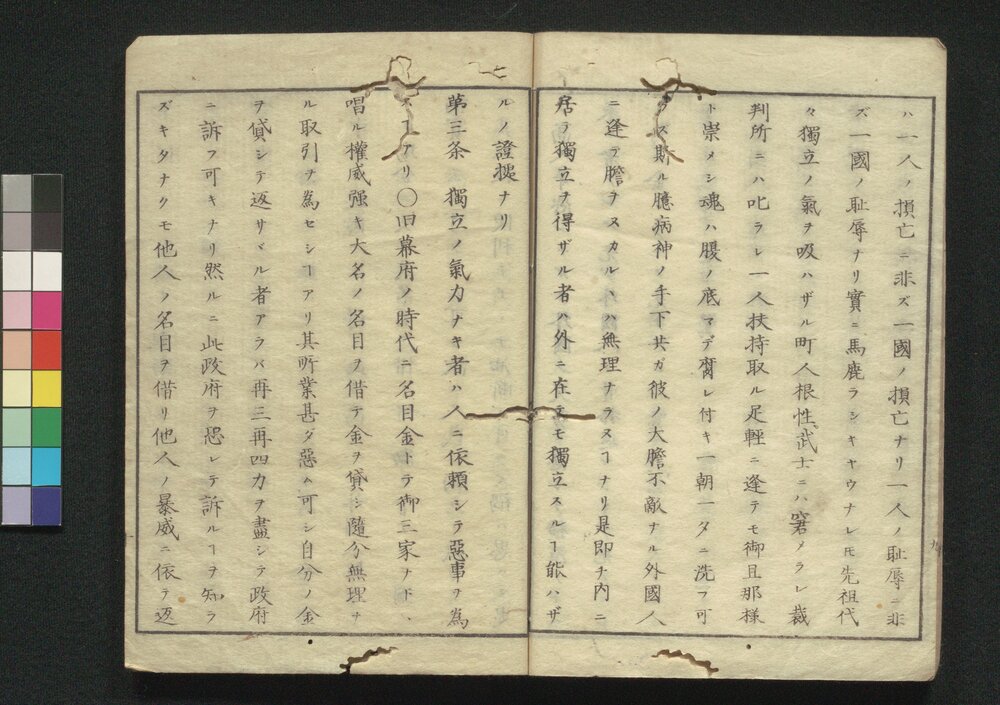 ハ一人ノ損亡ニ非ズ一國ノ損亡ナリ一人ノ耻辱ニ非
ズ一國ノ耻辱ナリ實ニ馬鹿ラシキヤウナレ𪜈先祖代
々獨立ノ氣ヲ吸ハザル町人根性武士ニハ窘メラレ裁
判所ニハ叱ラレ一人扶持取ル足輕ニ逢テモ御旦那様
ト崇メシ魂ハ腹ノ底マデ腐レ付キ一朝一夕ニ洗フ可
ラズ斯ル臆病神ノ手下共ガ彼ノ大膽不敵ナル外國人
ニ逢テ膽ヲヌカルヽハ無理ナラヌヿナリ是即チ内ニ
居テ獨立ヲ得ザル者ハ外ニ在テモ獨立スルヿ能ハザ
ルノ證據ナリ
第三条 獨立ノ氣力ナキ者ハ人ニ依頼シテ惡事ヲ為
スヿアリ〇旧幕府ノ時代ニ名目金トテ御三家ナドヽ
唱ル權威强キ大名ノ名目ヲ借テ金ヲ貸シ隨分無理ナ
ル取引ヲ為セシヿアリ其所業甚ダ惡ム可シ自分ノ金
ヲ貸シテ返サヾル者アラバ再三再四力ヲ盡シテ政府
ニ訴フ可キナリ然ルニ此政府ヲ恐レテ訴ルヿヲ知ラ
ズキタナクモ他人ノ名目ヲ借リ他人ノ暴威ニ依テ返